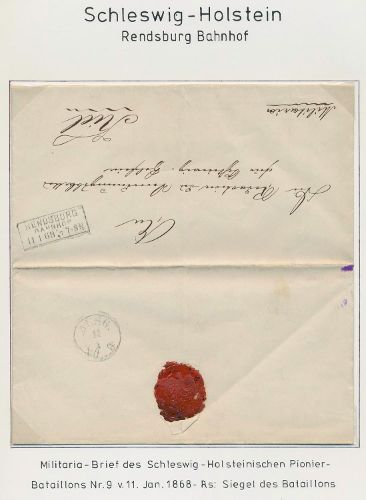 Schleswig-Holstein
Rendsburg Bahnhof
Militaria
An
die Redaction des Verordnungsblattes
für Schleswig-Holstein
Kiel
RENDSBURG
BAHNHOF
11 1 68
Militaria-Brief des Schleswig-Holsteinischen Pionier-
Bataillons Nr. 9 v. 11. Jan. 1868- Rs: Siegel des Bataillons